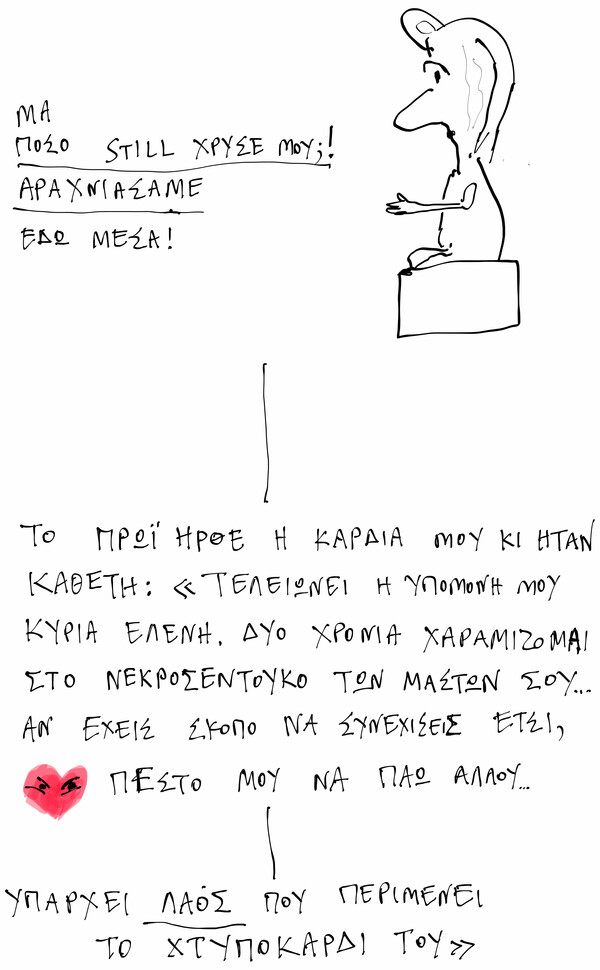 ΜΑ
ΠΟΣΟ STILL ΧΡΥΣΕ ΜΟΥ;!
ΑΡΑΧΝΙΑΣΑΜΕ
ΕΔΩ ΜΕΣΑ!
ΤΟ ΠΡΩΪ ΗΡΘΕ Η ΚΑΡΔΙΑ ΜΟΥ ΚΙ ΗΤΑΝ
ΚΑΘΕΤΗ: «ΤΕΛΕΙΩΝΕΙ Η ΥΠΟΜΟΝΗ ΜΟΥ
ΚΥΡΙΑ ΕΛΕΝΗ. ΔΥΟ ΧΡΟΝΙΑ ΧΑΡΑΜΙΖΟΜΑΙ
ΣΤΟ ΝΕΚΡΟΣΕΝΤΟΥΚΟ ΤΩΝ ΜΑΣΤΩΝ ΣΟΥ...
ΑΝ ΕΧΕΙΣ ΣΚΟΠΟ ΝΑ ΣΥΝΕΧΙΣΕΙΣ ΕΤΣΙ,
ΠΕΣΤΟ ΜΟΥ ΝΑ ΠΑΩ ΑΛΛΟΥ...
ΥΠΑΡΧΕΙ ΛΑΟΣ ΠΟΥ ΠΕΡΙΜΕΝΕΙ
ΤΟ ΧΤΥΠΟΚΑΡΔΙ ΤΟΥ»